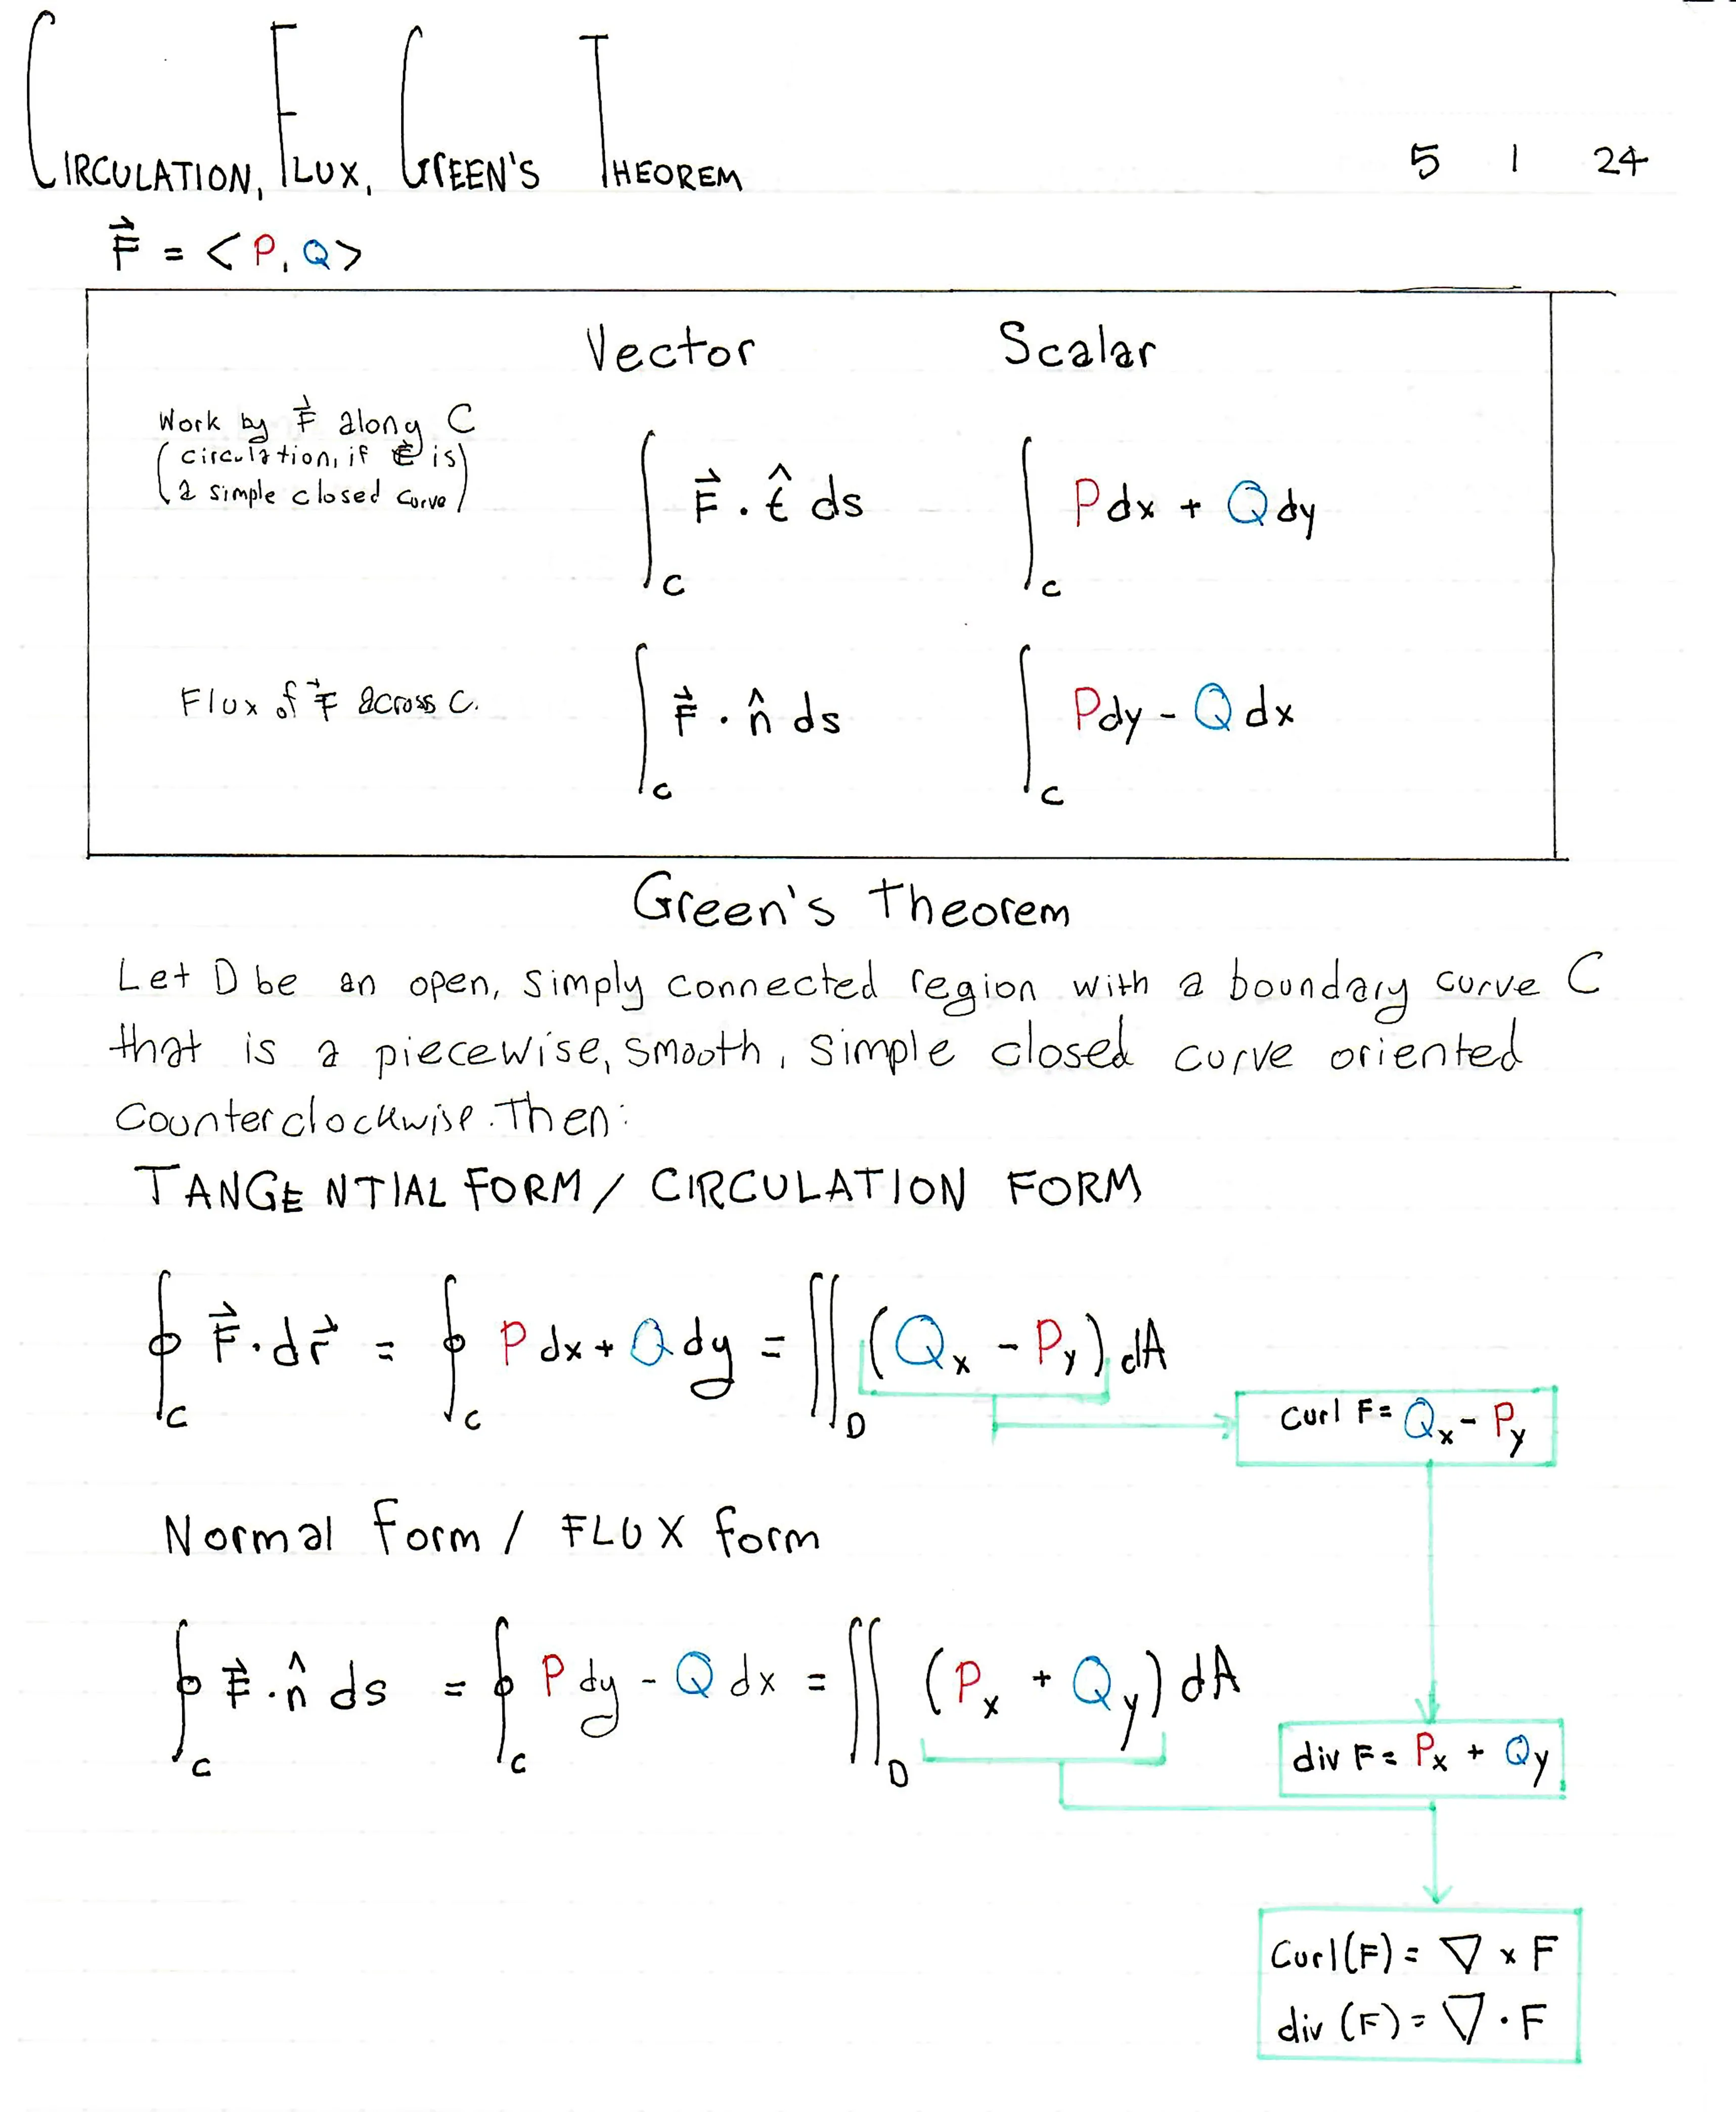 CIRCULATION, FLUX, GREEN'S THEOREM 5 1 24
F⃗ = <P, Q>
Vector Scalar
Work by F⃗ along C
(circulation, if C is
a simple closed curve)
∫_C F⃗ · t̂ ds ∫_C Pdx + Qdy
Flux of F⃗ across C.
∫_C F⃗ · n̂ ds ∫_C Pdy - Qdx
Green's Theorem
Let D be an open, simply connected region with a boundary curve C
that is a piecewise, smooth, simple closed curve oriented
counterclockwise. Then:
TANGENTIAL FORM / CIRCULATION FORM
∮_C F⃗ · dr⃗ = ∮_C Pdx + Qdy = ∬_D (Q_x - P_y) dA
Curl F = Q_x - P_y
Normal form / FLUX form
∮_C F⃗ · n̂ ds = ∮_C Pdy - Qdx = ∬_D (P_x + Q_y) dA
div F = P_x + Q_y
Curl(F) = ∇ × F
div (F) = ∇ · F